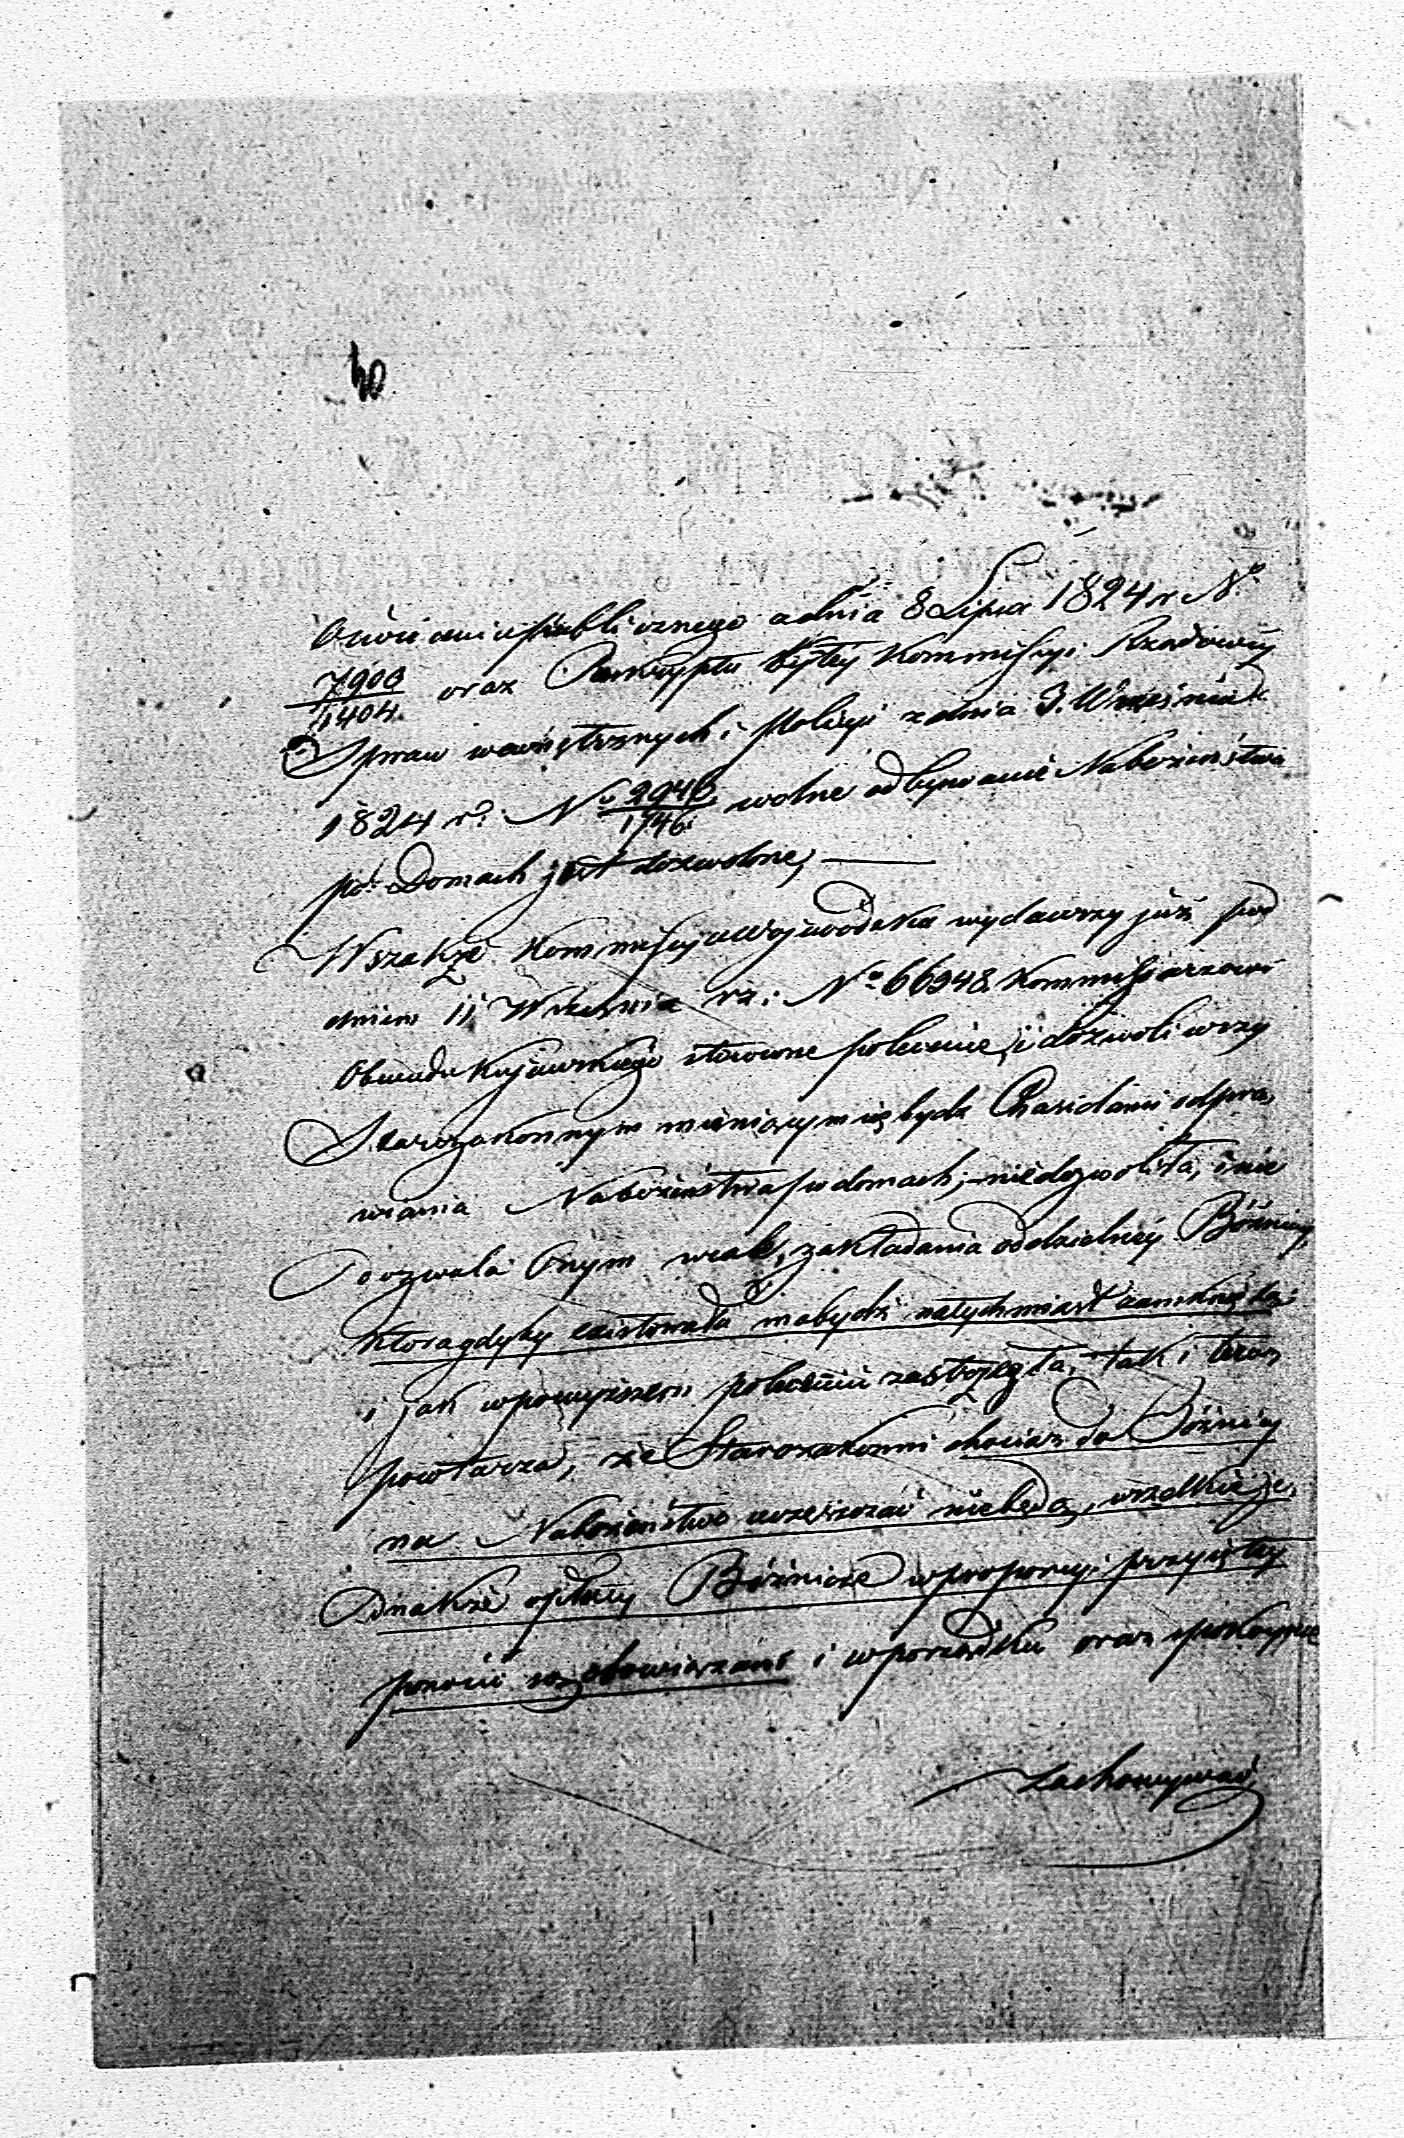 40
Oświecenia publicznego z dnia 8 Lipca 1824 r N.º
7908/1404 oraz Reskryptu byłey Kommissyi Rządowéy
Spraw wewnętrznych i Policyi z dnia 3. Września
1824 r: N.º 2946/1746 wolne odbywanie Nabożeństwa
po Domach jest dozwolone; ———
Wszakże Kommissya Wojewódzka wydawszy już pod
dniem 11 Września rz: N.º 66948 Kommissarzowi
Obwodu Kujawskiego stosowne polecenie, i dozwoliwszy
Starozakonnym mieniącym się bydź Chasidami odpra„
wiania Nabożeństwa po domach; niedozwoliła, i nie
Dozwala Onym wcale, zakładania oddzielnéy Bóżnicy,
któragdyby exystowała mabydź natychmiast zamknięta;
i jak wpowyższem poleceniu zastrzegła, tak i teraz
powtarza, że Starozakonni chociaż do Bóżnicy
na Nabożeństwo uczęszczać niebędą, wszelkie je„
Dnakże opłaty Bóżnicze wproporcyi przyiętey
ponosić są obowiązani i wporządku oraz spokoyności
zachowywać.